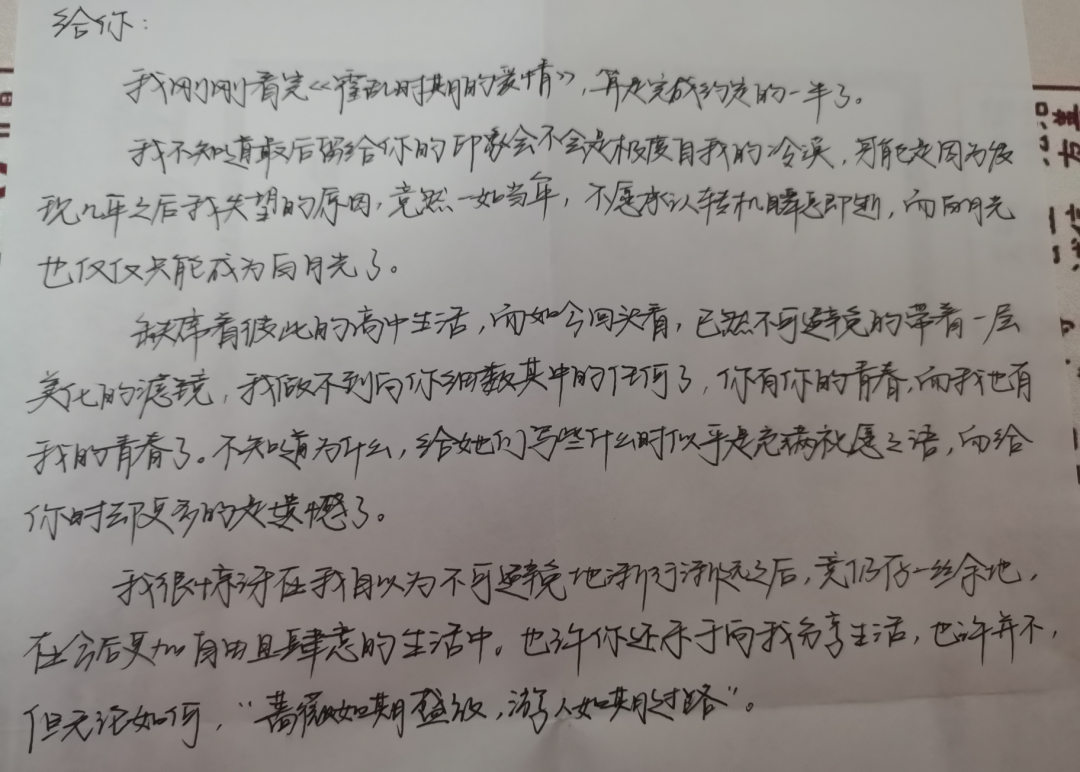 给你:
我刚刚看完《霍乱时期的爱情》,算是完成约定的一半了。
我不知道最后留给你的印象会不会是极度自我的冷漠,可能是因为发
现几年之后我失望的原因,竟然一如当年,不愿承认转机瞬息即逝,而白月光
也仅仅只能成为白月光了。
缺席着彼此的高中生活,而如今回头看,已然不可避免的带着一层
美化的滤镜,我做不到向你细数其中的任何了,你有你的青春,而我也有
我的青春了。不知道为什么,给她们写些什么时似乎是充满祝愿之语,而给
你时却更多的是遗憾了。
我很惊讶在我自以为不可避免地渐行渐远之后,竟仍存一丝余地,
在今后更加自由且肆意的生活中。也许你还乐于向我分享生活,也许并不,
但无论如何,“蔷薇如期盛放,游人如期过路”。